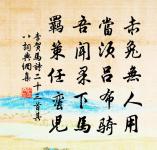 赤兔無人用
當須呂布騎
吾聞果下馬
羈策任蠻兒
李賀馬詩二十三首其
八詞典網集